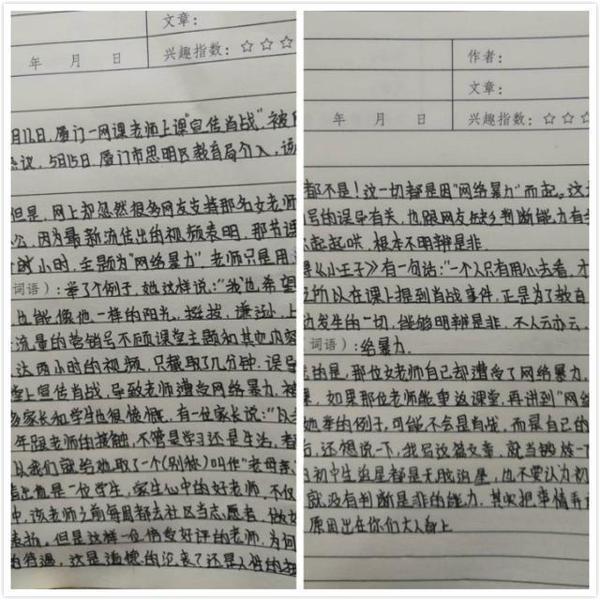 文章：
年 月 日 兴趣指数：☆☆☆
月11日，厦门一网课老师上课"宣传肖战"，被
议，5月15日，厦门市思明区教育局介入，该
但是，网上却忽然很多网友支持那名女老师
公，因为最新流传出的视频表明，那节课
小时，主题为"网络暴力"，老师只是用
词语）：举了个例子，她这样说："我也希望
也能像他一样的阳光、挺拔、谦逊、上
流量的营销号不顾课堂主题和其他内容
达两小时的视频，只截取了几分钟，误导
堂上宣传肖战，导致老师遭受网络暴力，被
多家长和学生也很愤慨，有一位家长说：
年跟老师的接触，不管是学习还是生活，都
从我们就给她取了个(别称)叫作"老母亲
是一位学生，家生心中的好老师，不仅
中，该老师之前每周都去社区当志愿者，做好
表扬，但是这样一位倍受好评的老师，为何
的待遇，这是道德的沦丧了还是人性的
作者：
文章：
年 月 日 兴趣指数：☆☆☆
都不是！这一切都是因"网络暴力"而起。这
号的误导有关，也跟网友缺乏判断能力有
起起哄，根本不明辨是非。
《小王子》有一句话："一个人只有用心去看，才
之所以在课上提到肖战事件，正是为了教育
边发生的一切，能够明辨是非，不人云亦云，
词语）：给暴力。
的是，那位女老师自己却遭受了网络暴力，
，如果那位老师能重返课堂，再讲到"网络
她举的例子，可能不会是肖战，而是自己的
后，还想说一下，我写这篇文章，就当锻炼一下
的初中生追星都是无脑追星，也不要认为初
就没有判断是非的能力，其实把事情弄
原因出在你们大人身上